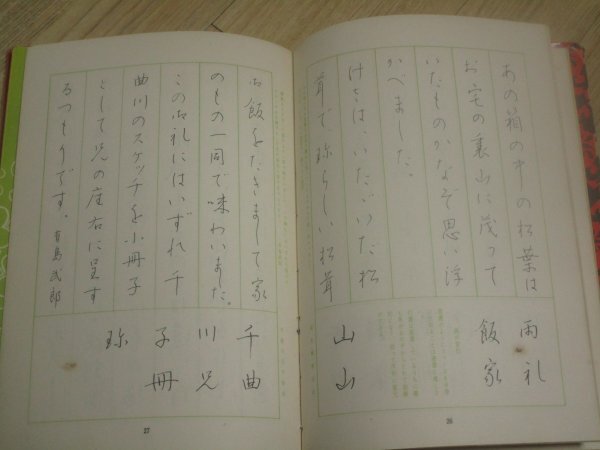 あの箱の中の松葉は
お宅の裏山に茂って
いたものかなぞ思い浮
かべました。
けさは、いただいた松
茸で珍らしい松茸
両礼
飯家
山山
26
お飯をたきまして家
のもの一同で味わいました。
この御礼にはいずれ千
曲川のスケッチを小冊子
として兄の座右に呈す
るつもりです。有島武郎
千曲
川兄
子冊
珍
27